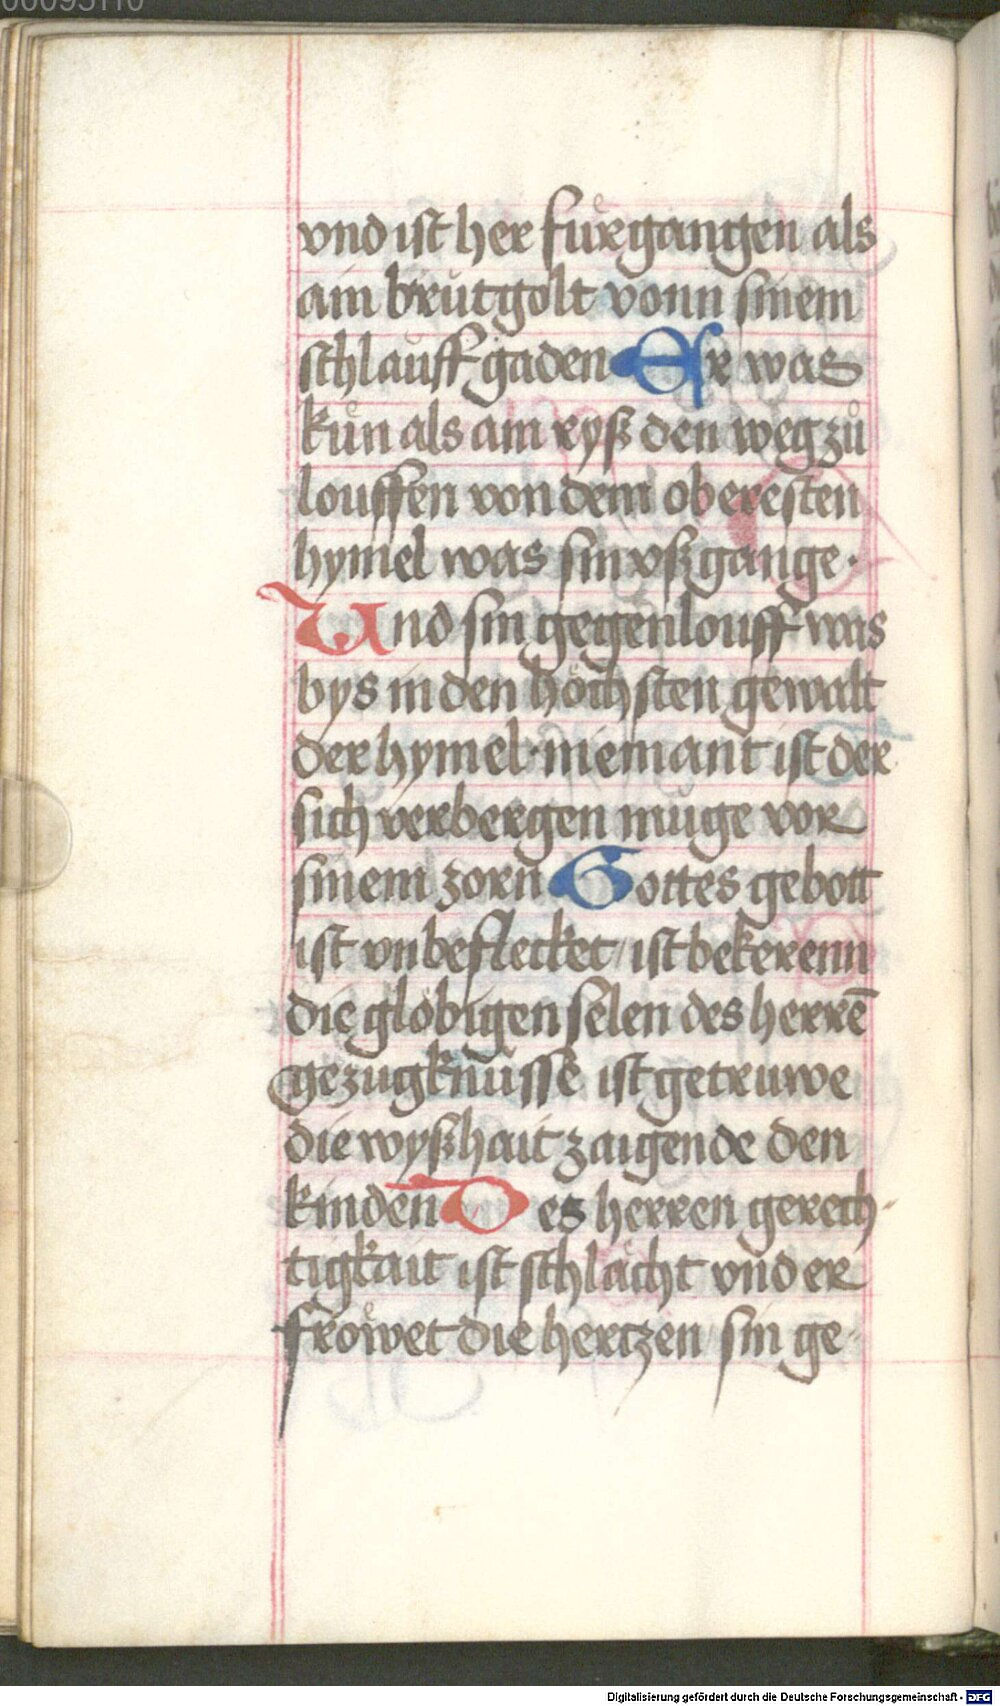 00095110
vnd ist her fuͤrgangen als
ain brútgolt vonn sinem
schlauffgaden Er was
kuͤn als ain ryß den weg zuͦ
louffen von dem oberesten
hymel was sin vßgange·
Und sin gegenlouff was
bys in den höchsten gewalt
der hymel· niemant ist der
sich verbergen muge vor
sinem zorn Gottes gebott
ist vnbeflecket / ist bekerenn
die glöbigen selen des herrē
gezúgknússe ist getruwe
die wyßhait zaigende den
kinden Des herren gerech
tigkait ist schlächt vnd er
froͤwet die hertzen / sin ge-
Digitalisierung gefördert durch die Deutsche Forschungsgemeinschaft - DFG